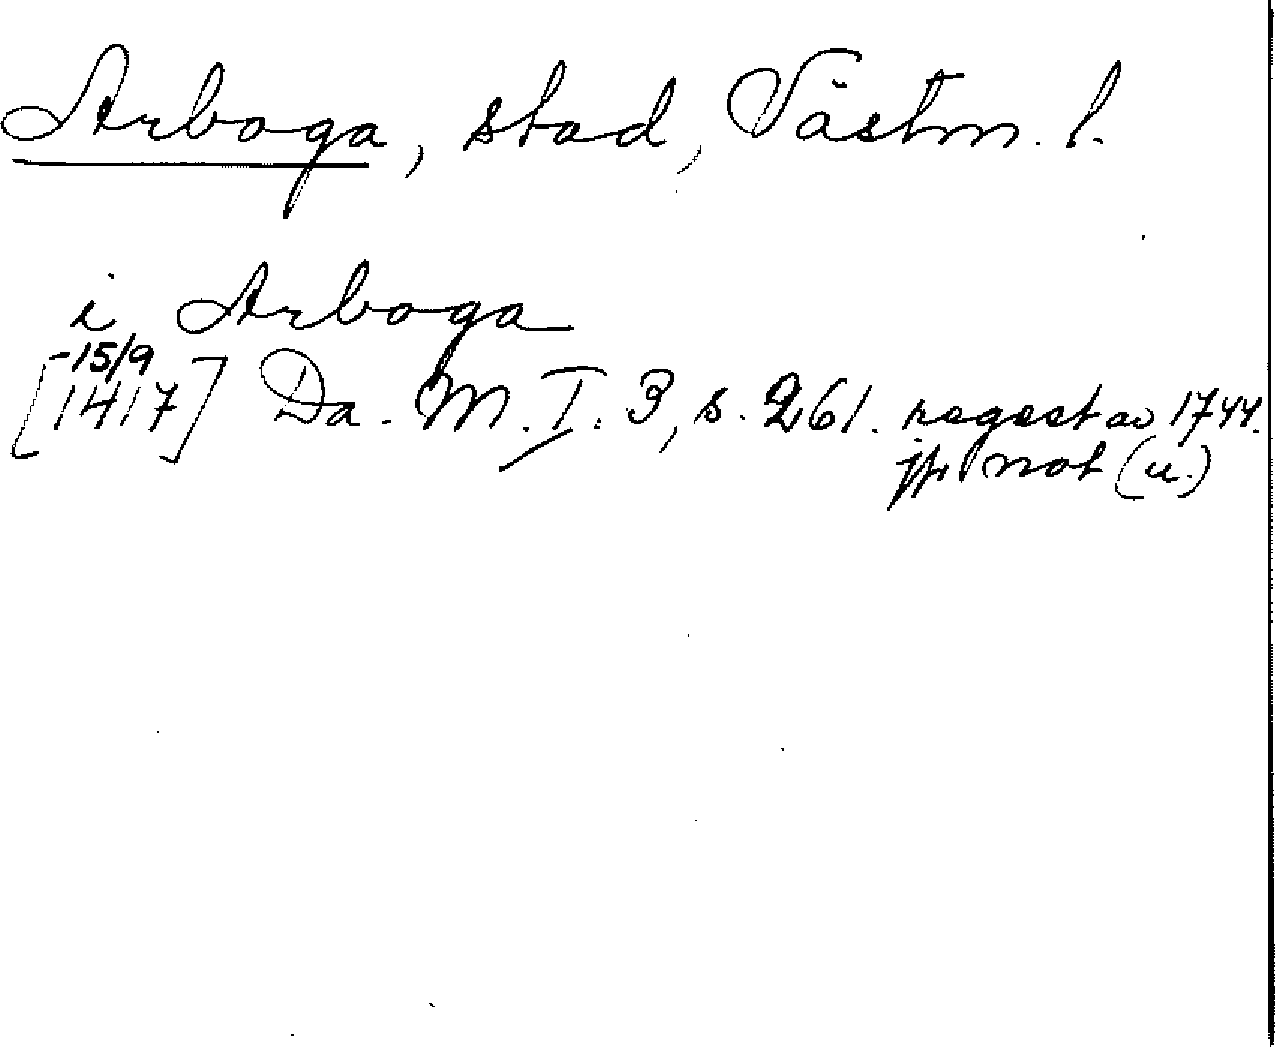 Arboga, stad, Västm. l.
i Arboga
-15/9
[1417] Da. M. I. 3, s. 261. regest av 1744.
jfr not (u.)